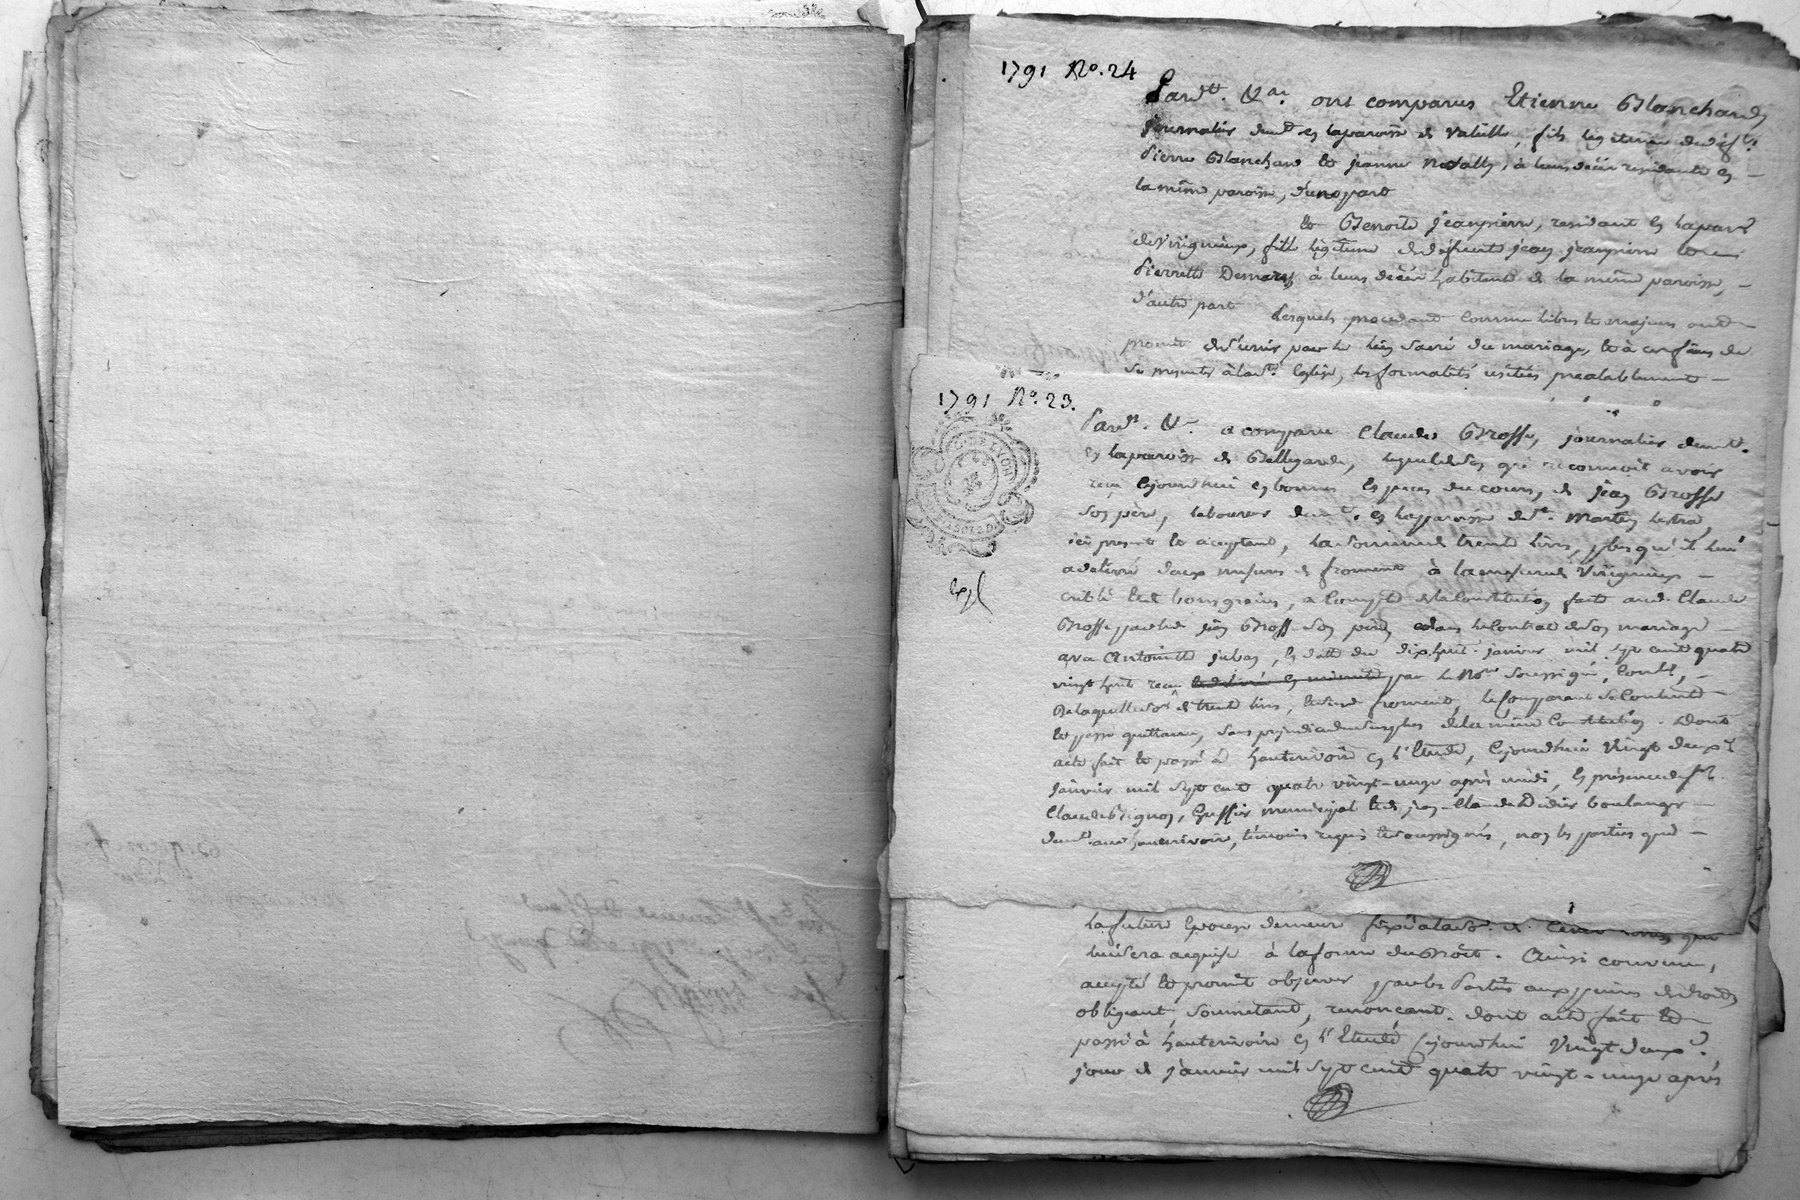 1791 No. 24
Pardt. &ar. ont comparus Etienne Blanchard
journalier demt. en laparoisse de Valeille, fils legitime de deft.
Pierre Blanchard et jeanne, à leurs décès residants en
la même paroisse, d'une part
et Benoite jeanpierre, residant en la par.
de Virigneux, fille légitime de défunt jean jeanpierre et
Pierrette, à leurs décès habitant de la même paroisse,
d'autre part Lesquels procedant comme libres et majeurs ont
promis de s'unir par le lien sacré du mariage, et à ces fins de
se presenter à la ste. Eglise, les formalités usitées prealablement
1791 No. 23.
Pardt. &r. a comparu Claude Grosse, journalier demt.
en laparoisse de Bellegarde, lequel de son gré reconnoit avoir
reçu cejourd'hui en bonnes espèces du cours, de jean Grosse
son père, laboureur demt. en la paroisse de st. Martin lestra,
ici present et acceptant, la somme de trente livres, plus qu'il lui
a delivré deux mesures de froment à la mesure de Virigneux
criblé et de bons grains, a Compte de la Constitution faite aud. Claude
Grosse par led. jean Grosse son père dans le Contrat de son mariage
avec Antoinette, en datte du dix huit janvier mil sept cent quatre
vingt huit reçu par le Nore. soussigné, Contlé,
De laquelle so. de trente livres, et dud. froment, le Comparant se Contente
et passe quittance, sans prejudice du surplus de la même Constitution. Dont
acte fait et passé à hauterivoire en l'Etude, cejourd'hui vingt deux
janvier mil sept cent quatre vingt-onze après midi, en présence de sr.
Claude, Greffier municipal et de jean-Claude Didier boulanger
demt. aud. hauterivoire, témoins requis et soussignés, non les parties qui
Exp
la future Epouse demeure fixé à la so. de
lui sera acquise à la forme du Droit. Ainsi convenu,
accepté et promis observer par les Parties aux peines de droit
obligeant, soumetant, renonçant. dont acte fait et
passé à hauterivoire en l'Etude cejourd'hui Vingt deux
jour de janvier mil sept cent quatre vingt-onze après